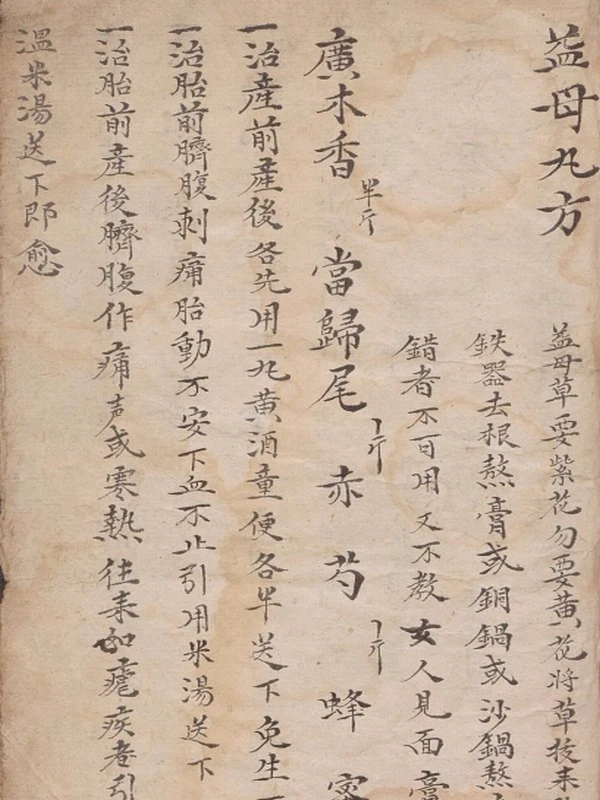 益母丸方
益母草要紫花勿要黃花將草拔来
鉄器去根熬膏或銅鍋或沙鍋熬
錯者不可用又不教女人見面膏
廣木香 半斤 當歸尾 一斤 赤芍 一斤 蜂蜜
一治產前產後各先用一丸黄酒童便各半送下免生
一治胎前臍腹刺痛胎動不安下血不止引用米湯送下
一治胎前產後臍腹作痛声或寒熱往来如瘧疾者引
温米湯送下即愈